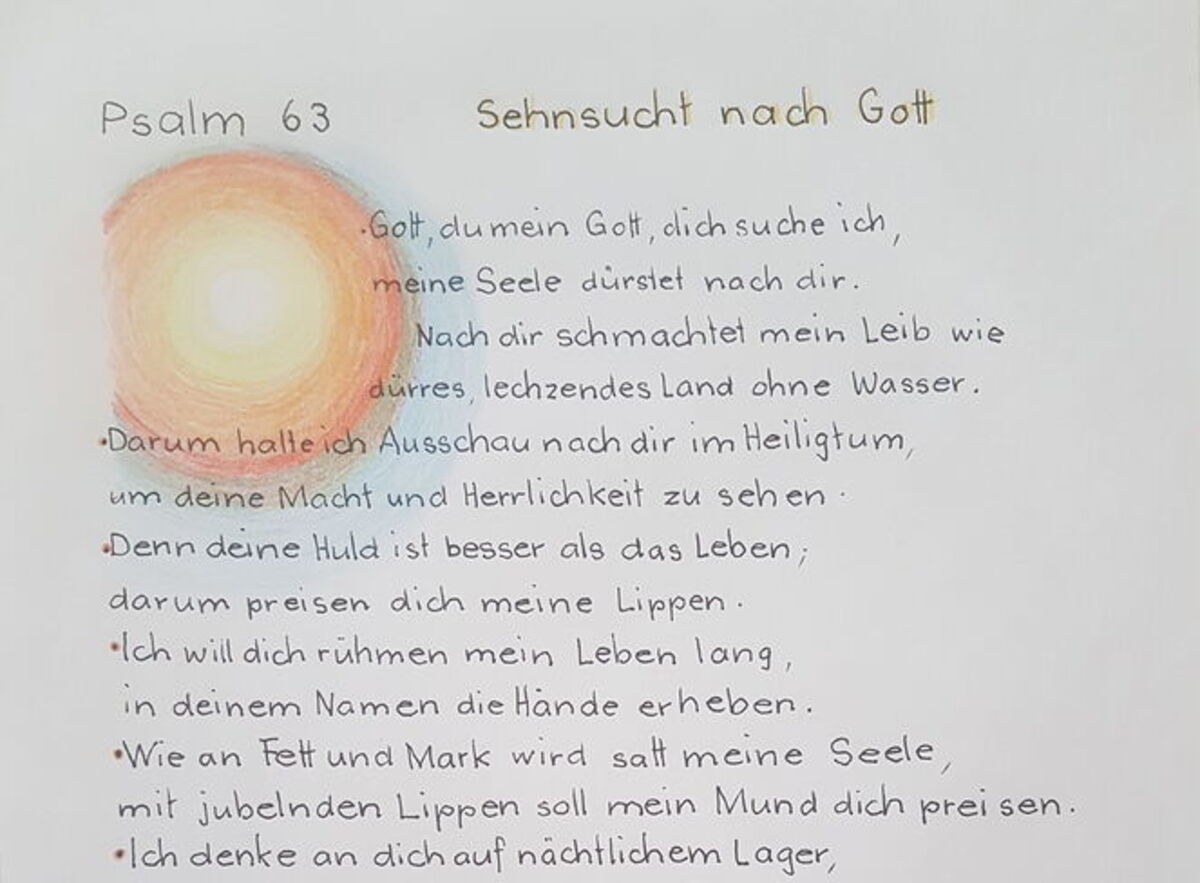 Psalm 63 Sehnsucht nach Gott
·Gott, du mein Gott, dich suche ich,
meine Seele dürstet nach dir.
Nach dir schmachtet mein Leib wie
dürres, lechzendes Land ohne Wasser.
·Darum halte ich Ausschau nach dir im Heiligtum,
um deine Macht und Herrlichkeit zu sehen.
·Denn deine Huld ist besser als das Leben;
darum preisen dich meine Lippen.
·Ich will dich rühmen mein Leben lang,
in deinem Namen die Hände erheben.
·Wie an Fett und Mark wird satt meine Seele,
mit jubelnden Lippen soll mein Mund dich preisen.
·Ich denke an dich auf nächtlichem Lager,